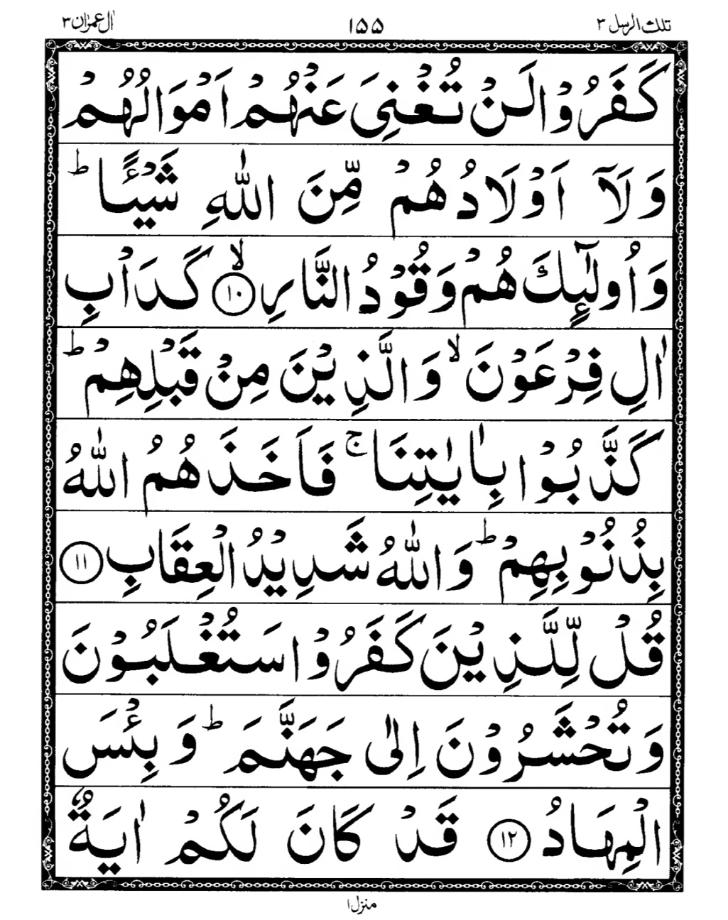 تلك الرسل ٣ ١٥٥ اٰل عمرٰن ٣
كَفَرُوْا لَنْ تُغْنِیَ عَنْهُمْ اَمْوَالُهُمْ
وَلَاۤ اَوْلَادُهُمْ مِّنَ اللّٰهِ شَیْـًٔا ؕ
وَ اُولٰٓىِٕكَ هُمْ وَقُوْدُ النَّارِ ۙ﴿۱۰﴾ كَدَاْبِ
اٰلِ فِرْعَوْنَ ۙ وَ الَّذِیْنَ مِنْ قَبْلِهِمْ ؕ
كَذَّبُوْا بِاٰیٰتِنَا ۚ فَاَخَذَهُمُ اللّٰهُ
بِذُنُوْبِهِمْ ؕ وَ اللّٰهُ شَدِیْدُ الْعِقَابِ ﴿۱۱﴾
قُلْ لِّلَّذِیْنَ كَفَرُوْا سَتُغْلَبُوْنَ
وَ تُحْشَرُوْنَ اِلٰی جَهَنَّمَ ؕ وَ بِئْسَ
الْمِهَادُ ﴿۱۲﴾ قَدْ كَانَ لَكُمْ اٰیَةٌ
منزل ١